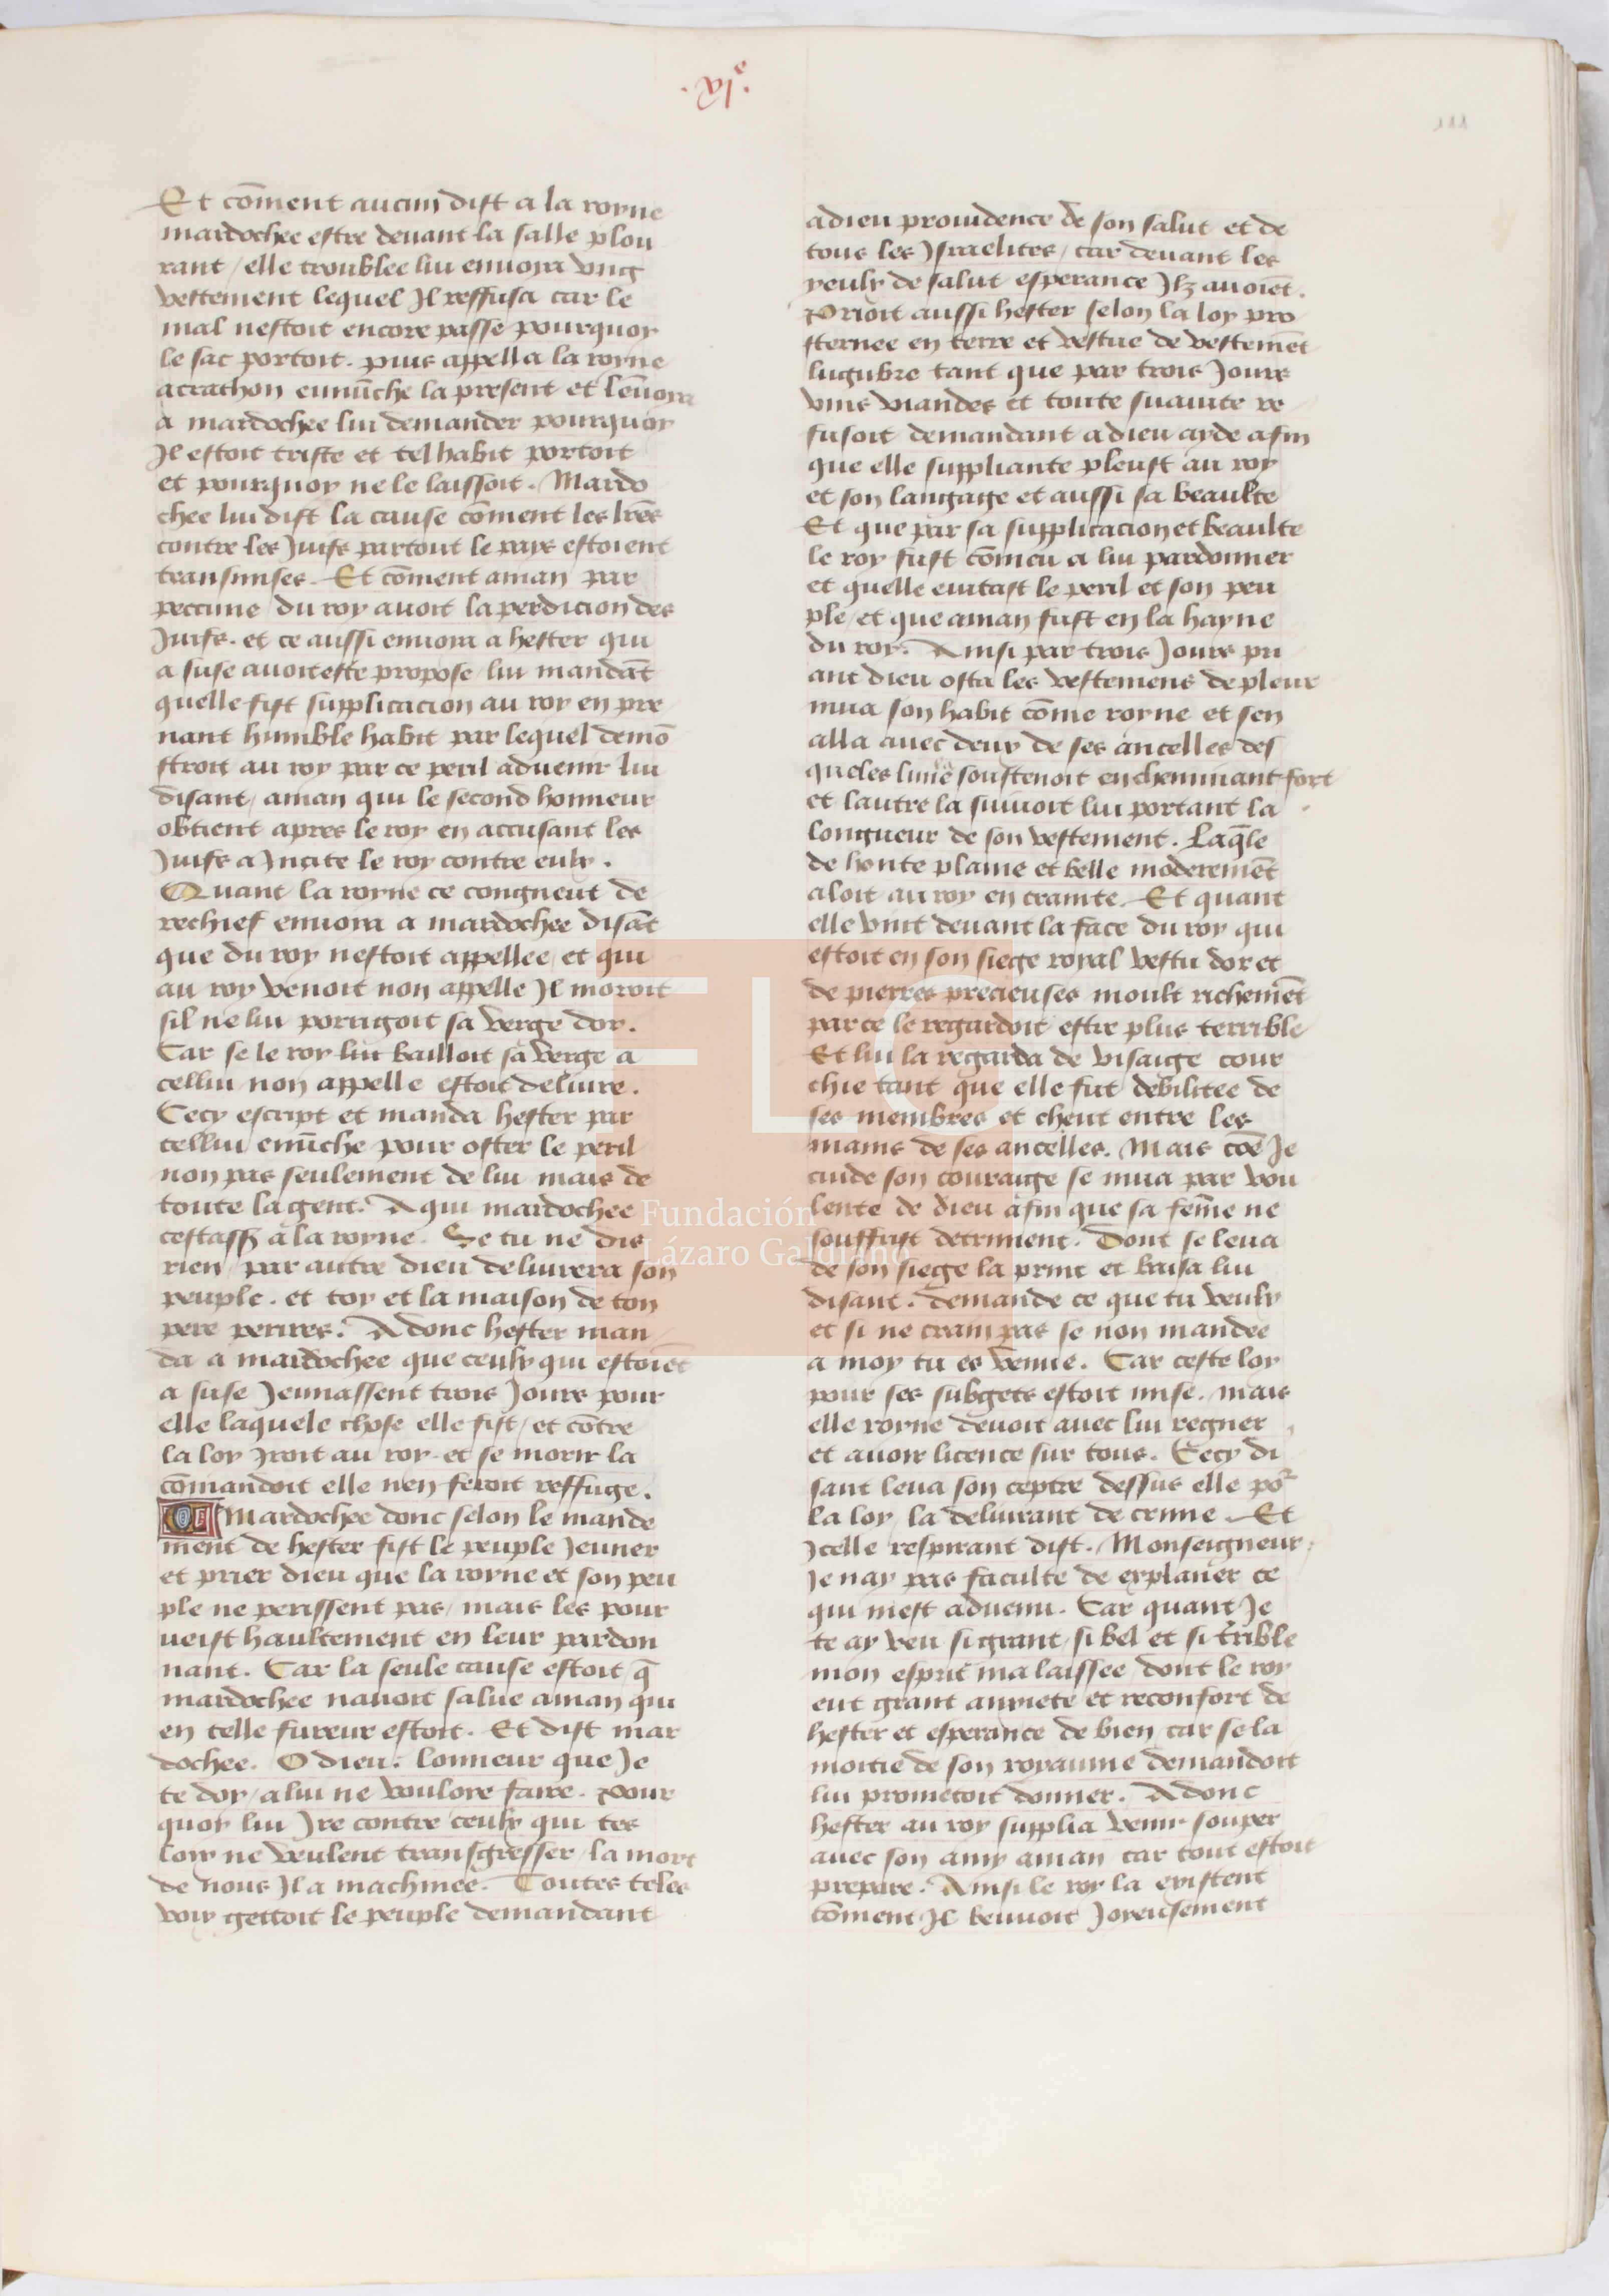 .vjᵉ.
111
Et cõment aucun dist a la royne
mardochee estre deuant la salle plou
rant / elle troublee lui enuoya vng
vestement lequel Il reffusa car le
mal nestoit encore passe pourquoy
le sac portoit. puis appella la royne
acrathon eunũche la present et lẽuoya
a mardochee lui demander pourquoy
Il estoit triste et tel habit portoit
et pourquoy ne le laissoit. Mardo
chee lui dist la cause cõment les lr̃es
contre les Juifs partout le pays estoient
transmises. Et cõment aman par
peccune du roy auoit la perdicion des
Juifs. et ce aussi enuoya a hester qui
a suse auoit este propose lui mandãt
quelle fist supplicacion au roy en pre
nant humble habit par lequel demõ
stroit au roy par ce peril aduenir lui
disant / aman qui le second honneur
obtient apres le roy en accusant les
Juifs a Incite le roy contre eulx.
Quant la royne ce congneut de
rechief enuoya a mardochee disãt
que du roy nestoit appellee et qui
au roy venoit non appelle Il moroit
sil ne lui portigoit sa verge dor.
Car se le roy lui bailloit sa verge a
cellui non appelle estoit deliure.
Cecy escript et manda hester par
cellui enũche pour oster le peril
non pas seulement de lui mais de
toute la gent. A qui mardochee
a la royne. Se tu ne dis
rien par autre dieu deliurera son
peuple. et toy et la maison de ton
pere perires. Adonc hester man
da a mardochee que ceulx qui estoiẽt
a suse Jeunassent trois Jours pour
elle laquele chose elle fist / et cõtre
la loy Iroit au roy. et se morir la
cõmandoit elle nen feroit reffuge.
Mardochee donc selon le mande
ment de hester fist le peuple Jeuner
et prier dieu que la royne et son peu
ple ne perissent pas / mais les pour
ueist haultement en leur pardon
nant. Car la seule cause estoit q̃
mardochee nauoit salue aman qui
en telle fureur estoit. Et dist mar
dochee. O dieu. lonneur que Je
te doy / a lui ne vouloye faire. Pour
quoy lui Ire contre ceulx qui tes
loix ne veulent transgresser / la mort
de nous Il a machinee. Toutes teles
voix gettoit le peuple demandant
a dieu prouidence de son salut et de
tous les Israelites / car deuant les
yeulx de salut esperance Ilz auoiẽt.
Prioit aussi hester selon la loy pro
sternee en terre et vestue de vestemẽt
lugubre tant que par trois Jours
vins viandes et toute suauite re
fusoit demandant a dieu ayde afin
que elle suppliante pleust au roy
et son langaige et aussi sa beaulte
Et que par sa supplicacion et beaulte
le roy fust cõmeu a lui pardonner
et quelle euitast le peril et son peu
ple / et que aman fust en la hayne
du roy. Ainsi par trois Jours pri
ant dieu osta les vestemens de pleur
mua son habit cõme royne et sen
alla auec deux de ses ancelles des
queles lune soustenoit en cheminant fort
et lautre la suiuoit lui portant la
longueur de son vestement. Laq̃le
de honte plaine et belle moderemẽt
aloit au roy en crainte. Et quant
elle vint deuant la face du roy qui
estoit en son siege royal vestu dor et
de pierres precieuses moult richemẽt
par ce le regardoit estre plus terrible
Et lui la regarda de visaige cour
chie tant que elle fut debilitee de
ses membres et cheut entre les
mains de ses ancelles. Mais cõe Je
cuide son couraige se mua par vou
lente de dieu afin que sa fem̃e ne
souffrist detriment. Dont se leua
de son siege la print et baisa lui
disant. demande ce que tu veulx
et si ne crain pas se non mandee
a moy tu es venue. Car ceste loy
pour ses subgets estoit mise. mais
elle royne deuoit auec lui regner
et auoir licence sur tous. Cecy di
sant leua son ceptre dessus elle poʳ
la loy la deliurant de crime. Et
Icelle respirant dist. Monseigneur
Je nay pas faculte de explaner ce
qui mest aduenu. Car quant Je
te ay veu si grant / si bel et si t̃rible
mon esprit ma laissee dont le roy
eut grant anxiete et reconfort de
hester et esperance de bien car se la
moitie de son royaume demandoit
lui prometoit donner. Adonc
hester au roy supplia venir souper
auec son amy aman car tout estoit
prepare. Ainsi le roy la existent
cõment Il beuuoit Joyeusement
FLG
Fundación
Lázaro Galdiano